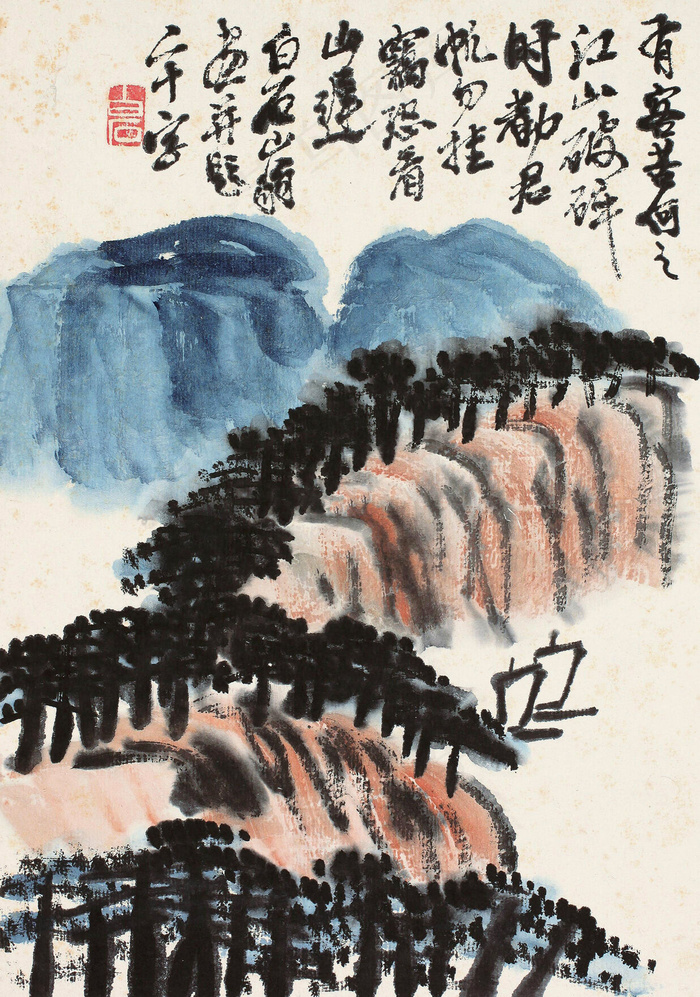 有客苦何之
江山破碎
时勸君
帆勿挂
竊恐看
山遲
白石山翁
画并題
二十字